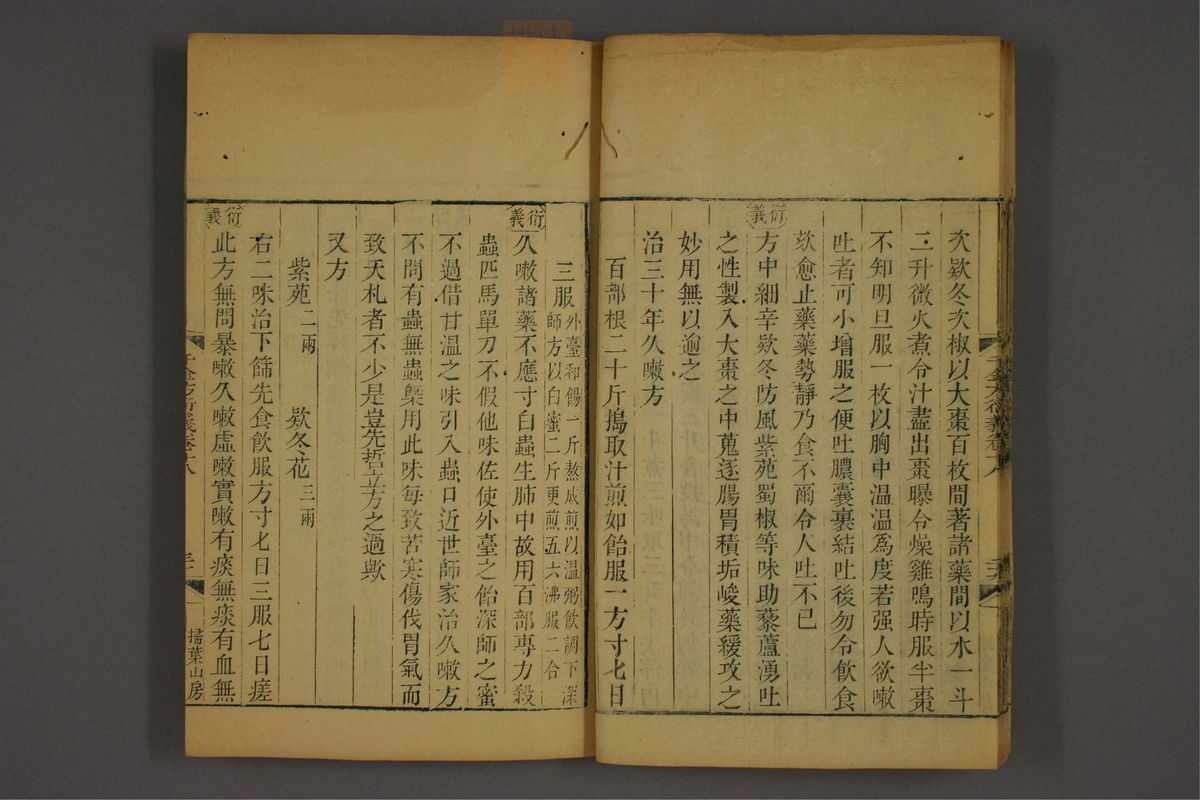 次欵冬次椒以大棗百枚間著諸藥間以水一斗
二升微火煮令汁盡出棗曝令燥雞鳴時服半棗
不知明旦服一枚以胸中温温爲度若强人欲嗽
吐者可小增服之便吐膿囊裹結吐後勿令飲食
欬愈止藥藥勢靜乃食不爾令人吐不已
衍義
方中細辛欵冬防風紫苑蜀椒等味助藜蘆湧吐
之性製入大棗之中蒐逐腸胃積垢峻藥緩攻之
妙用無以逾之
治三十年久嗽方
百部根二十斤搗取汁煎如飴服一方寸匕日
三服外臺和餳一斤熬成煎以温粥飲調下深
師方以白蜜二斤更煎五六沸服二合
衍義
久嗽諸藥不應寸白蟲生肺中故用百部專力殺
蟲匹馬單刀不假他味佐使外臺之飴深師之蜜
不過借甘温之味引入蟲口近世師家治久嗽方
不問有蟲無蟲槩用此味每致苦寒傷伐胃氣而
致夭札者不少是豈先哲立方之過歟
又方
紫苑二兩 欵冬花三兩
右二味治下篩先食飲服方寸匕日三服七日瘥
衍義
此方無問暴嗽久嗽虛嗽實嗽有痰無痰有血無
掃葉山房